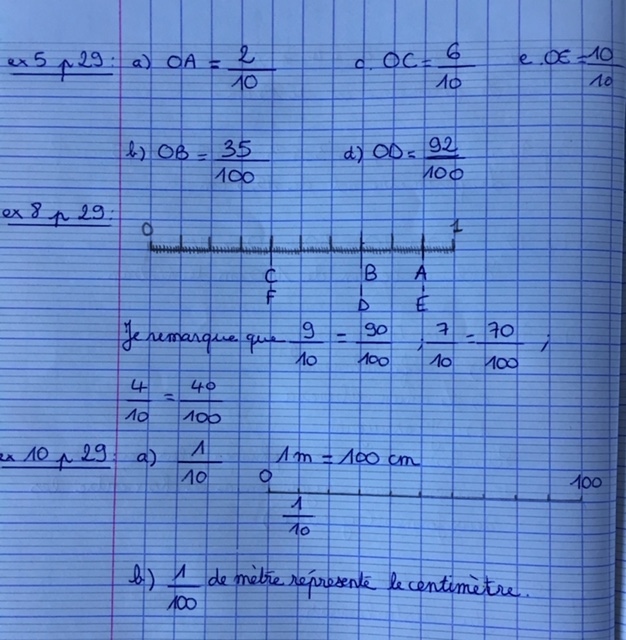 ex 5 p 29: a) OA = 2/10 c. OC = 6/10 e. OE = 10/10
b) OB = 35/100 d) OD = 92/100
ex 8 p 29:
0 1
C B A
F D E
Je remarque que 9/10 = 90/100 ; 7/10 = 70/100 ;
4/10 = 40/100
ex 10 p 29: a) 1/10 1 m = 100 cm
0 100
1/10
b) 1/100 de mètre réprésente le centimètre.